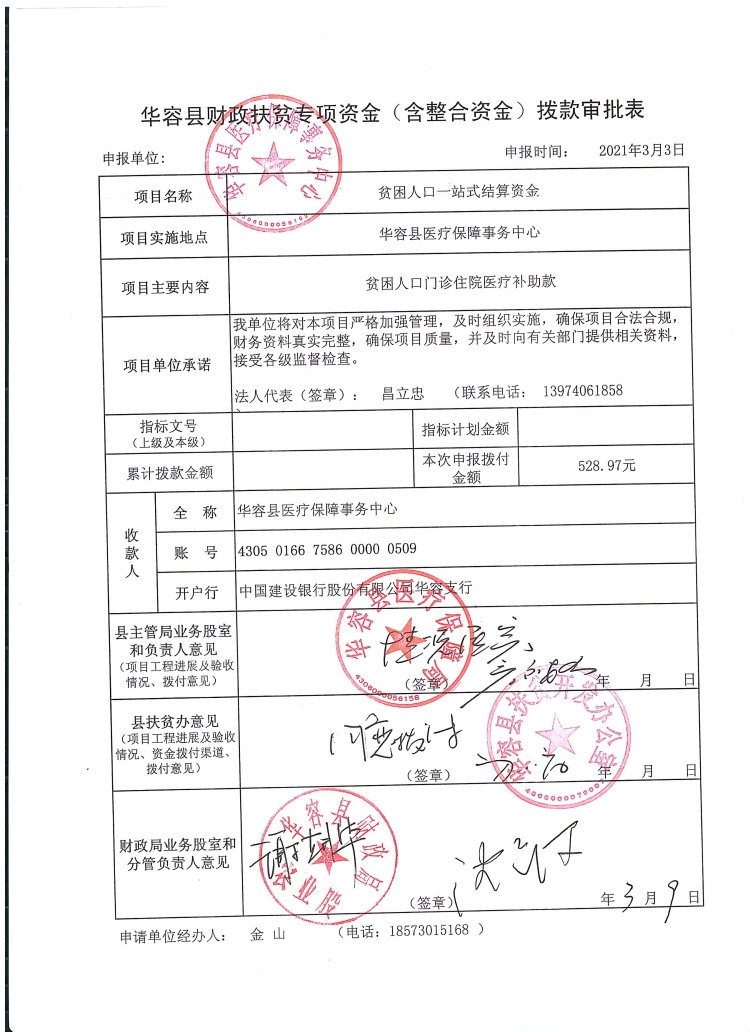 华容县财政扶贫专项资金（含整合资金）拨款审批表
申报单位: 申报时间： 2021年3月3日
华容县医疗保障事务中心
项目名称 贫困人口一站式结算资金
项目实施地点 华容县医疗保障事务中心
项目主要内容 贫困人口门诊住院医疗补助款
项目单位承诺
我单位将对本项目严格加强管理，及时组织实施，确保项目合法合规，
财务资料真实完整，确保项目质量，并及时向有关部门提供相关资料，
接受各级监督检查。
法人代表（签章）： 昌立忠 （联系电话： 13974061858
）
指标文号
（上级及本级）
指标计划金额
累计拨款金额
本次申报拨付
金额
528.97元
收款人
全 称 华容县医疗保障事务中心
账 号 4305 0166 7586 0000 0509
开户行 中国建设银行股份有限公司华容支行
县主管局业务股室
和负责人意见
（项目工程进展及验收
情况、拨付意见）
华容县医疗保障局
4306000056158
（签章） 年 月 日
县扶贫办意见
（项目工程进展及验收
情况、资金拨付渠道、
拨付意见）
同意拨付
华容县扶贫开发办公室
（签章） 年 月 日
财政局业务股室和
分管负责人意见
华容县财政局
（签章） 年3月9日
申请单位经办人： 金 山 （电话：18573015168 ）